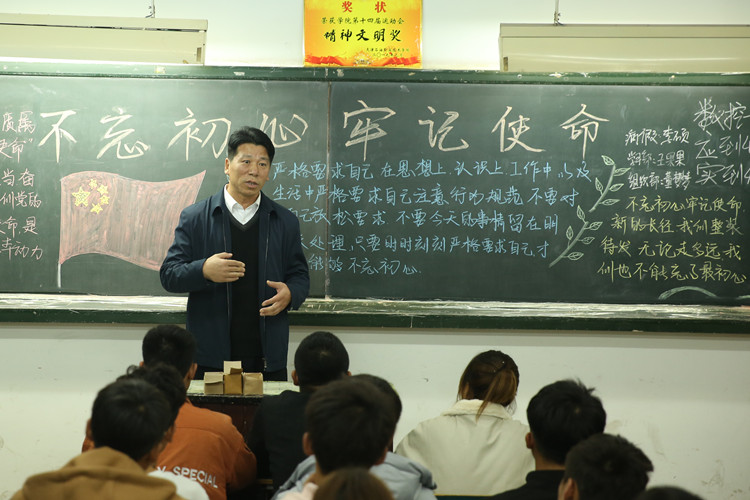 奖状
莱芜学院第十四届运动会
精神文明奖
不忘初心牢记使命
质展
使命"
当奋
们党的
命是
幸动力
严格要求自己在思想上.认识上工作中以及
生活中严格要求自己注意行为规范不要对
自己放松要求 不要今天的事情留在明
天处理,只要时时刻刻严格要求自己才
能够不忘初心.
数控
应到4
实到4
不忘初心牢记使命
新的长征我们整装
待发 无论走多远我
们也不能忘了最初心
SPECIAL